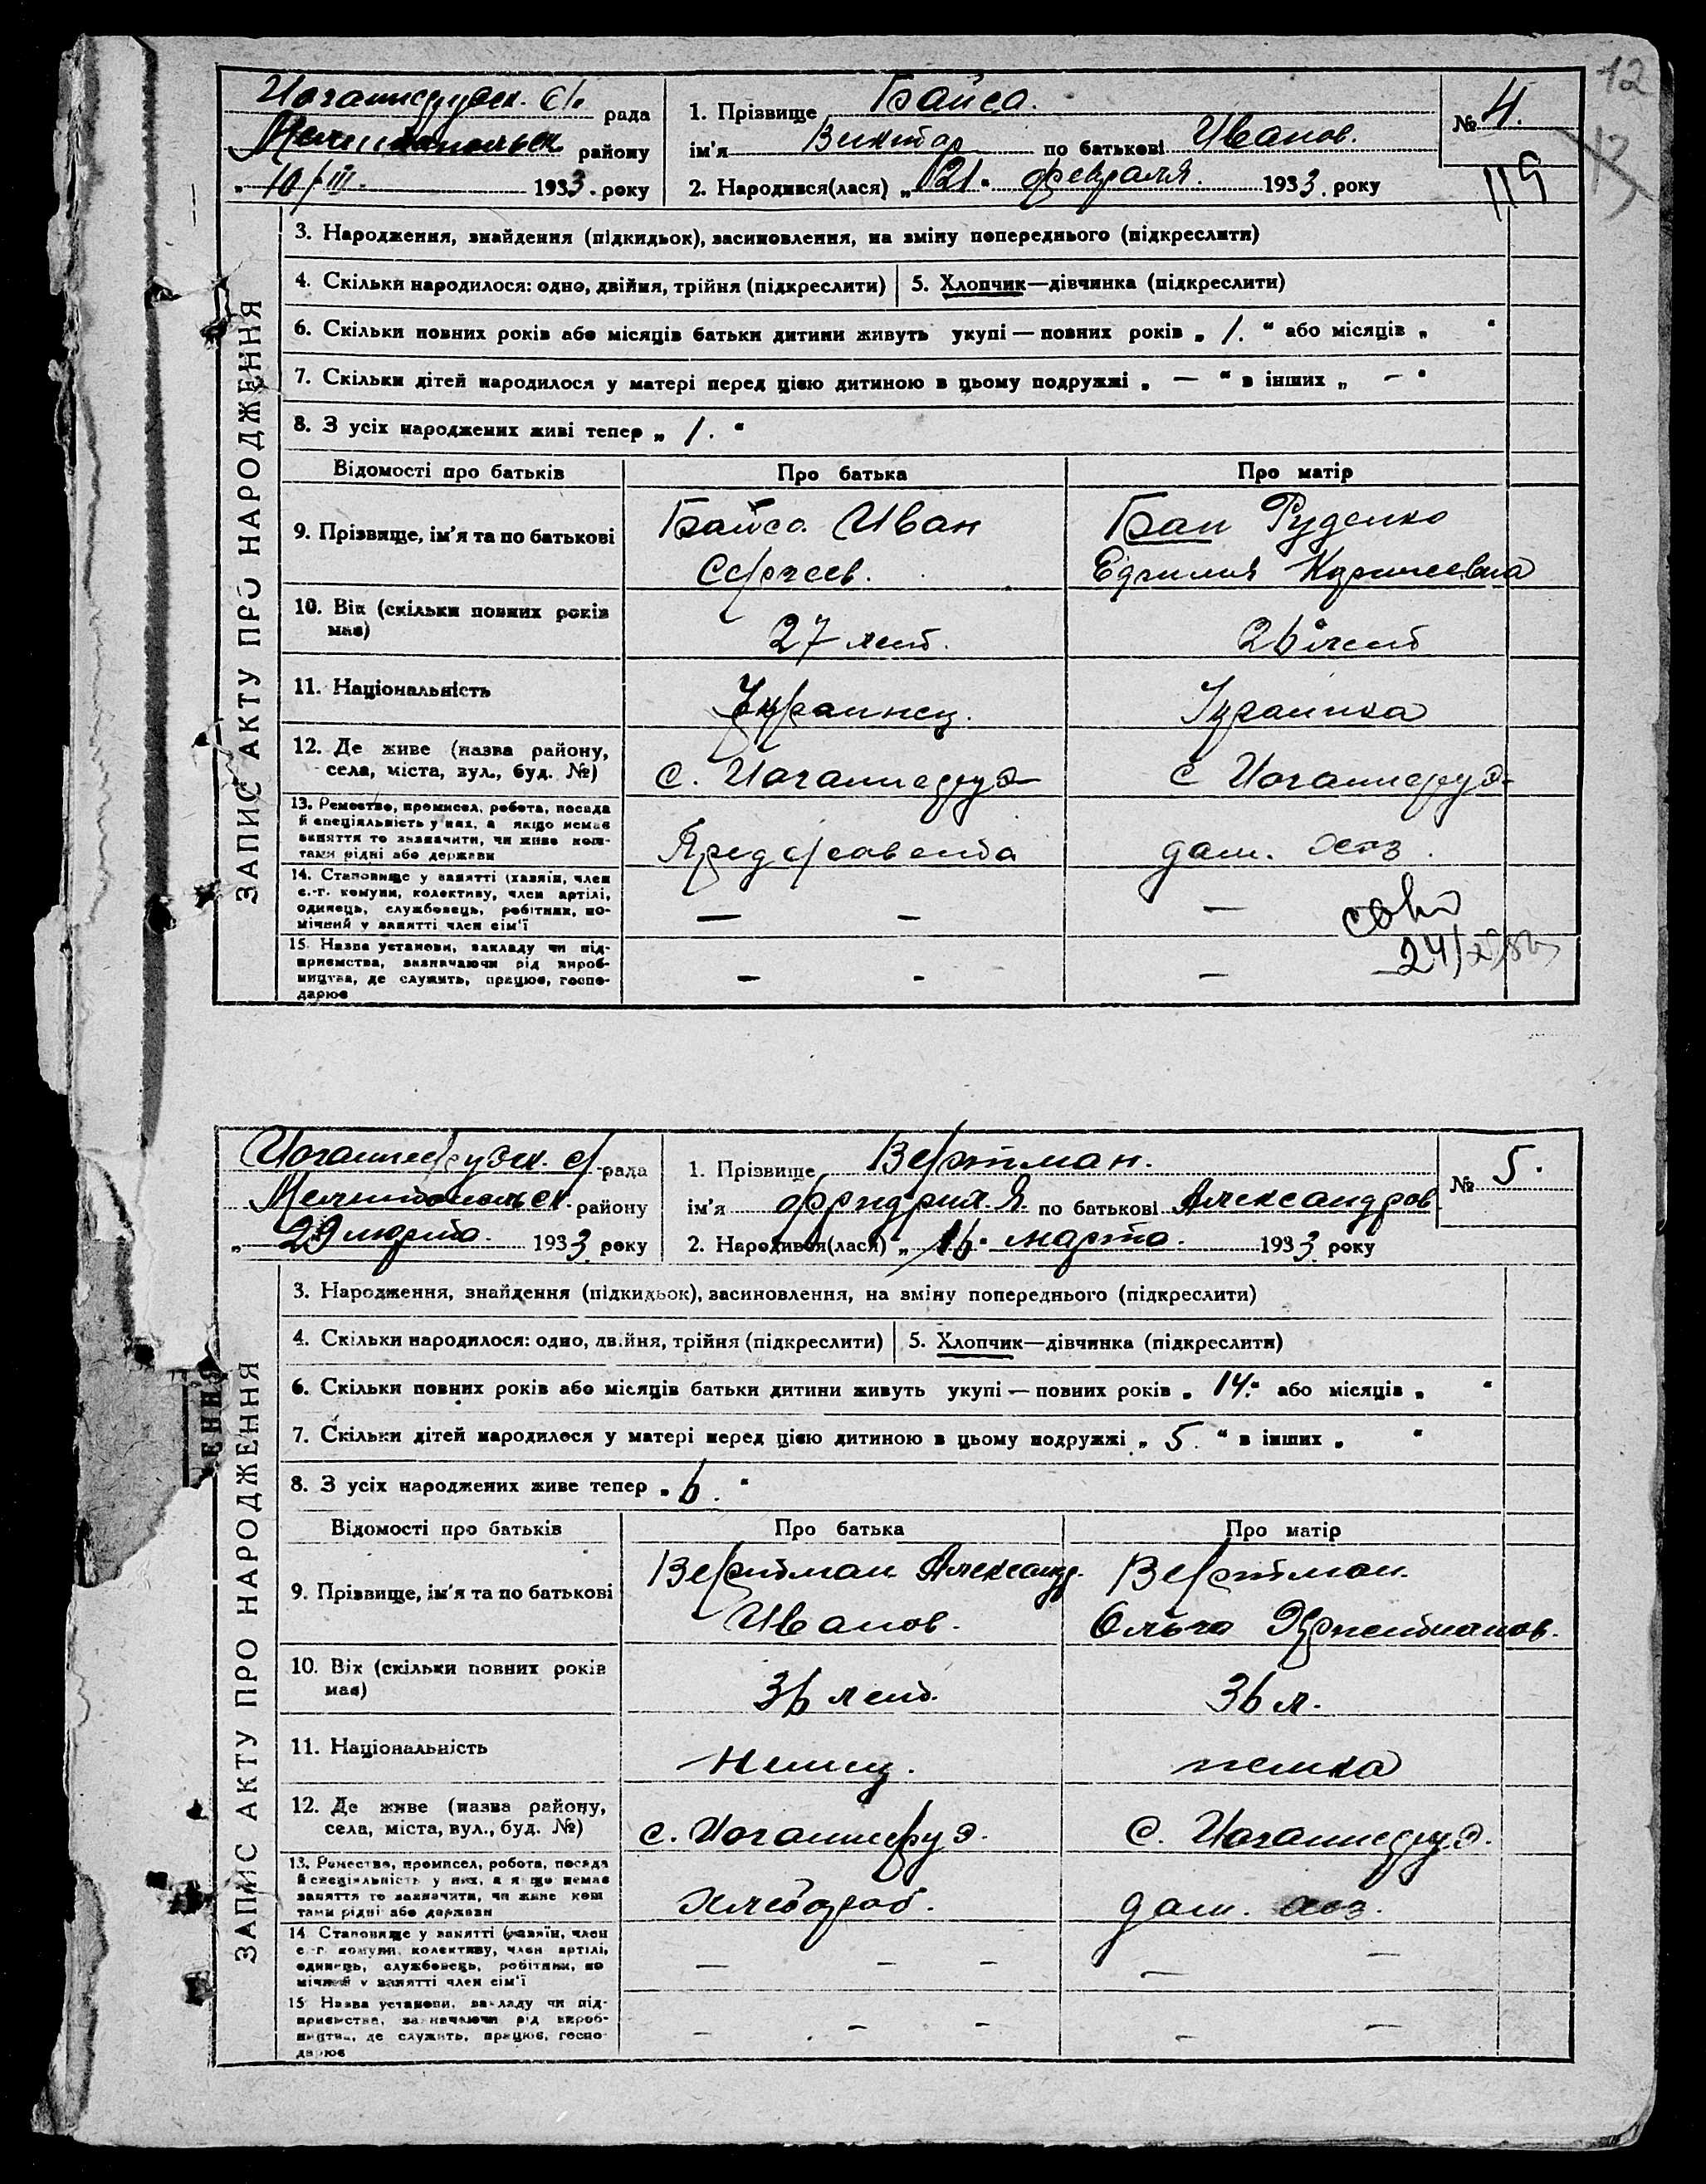 12
Иоганнесрувск. с/. рада
Мелитопольск району
„ 10/III. 1933. року
1. Прізвище Байса.
ім'я Виктор по батькові Иванов.
2. Народився(лася) „ 21 " февраля. 1933. року
№ 4.
119
ЗАПИС АКТУ ПРО НАРОДЖЕННЯ
3. Народження, знайдення (підкидьок), засиновлення, на зміну попереднього (підкреслити)
4. Скільки народилося: одно, двійня, трійня (підкреслити) 5. Хлопчик—дівчинка (підкреслити)
6. Скільки повних років або місяців батьки дитини живуть укупі — повних років „ 1. " або місяців „ "
7. Скільки дітей народилося у матері перед цією дитиною в цьому подружжі „ — " в інших „ — "
8. З усіх народжених живі тепер „ 1. "
Відомості про батьків Про батька Про матір
9. Прізвище, ім'я та по батькові
Байса Иван
Сергеев.
Бай Руденко
10. Вік (скільки повних років
має)
27 лет.
26 лет
11. Національність
Украинец.
Украинка
12. Де живе (назва району,
села, міста, вул., буд. №)
с. Иоганнесру
с Иоганнесру
13. Ремество, промисел, робота, посада
й спеціяльність у них, а якщо немає
заняття то зазначити, чи живе кош-
тами рідні або держави
дом. хоз.
14. Становище у занятті (хазяїн, член
с.-г. комуни, колективу, член артілі,
одинець, службовець, робітник, по-
мічний у занятті член сім'ї
— — —
15. Назва установи, закладу чи під-
приємства, зазначаючи рід вироб-
ництва, де служить, працює, госпо-
дарює
— — —
Иоганнесрувск. с/ рада
Мелитопольск. району
„ 29 марта. 1933. року
1. Прізвище Вертман.
ім'я Фридрих. Я. по батькові Александров
2. Народився(лася) „ 16 " марта. 1933. року
№ 5.
ЕННЯ
ЗАПИС АКТУ ПРО НАРОДЖЕННЯ
3. Народження, знайдення (підкидьок), засиновлення, на зміну попереднього (підкреслити)
4. Скільки народилося: одно, двійня, трійня (підкреслити) 5. Хлопчик—дівчинка (підкреслити)
6. Скільки повних років або місяців батьки дитини живуть укупі — повних років „ 14. " або місяців „ "
7. Скільки дітей народилося у матері перед цією дитиною в цьому подружжі „ 5. " в інших „ "
8. З усіх народжених живе тепер „ 6. "
Відомості про батьків Про батька Про матір
9. Прізвище, ім'я та по батькові
Вертман Александ.
Иванов.
Вертман.
Ольга
10. Вік (скільки повних років
має)
36 лет.
36 л.
11. Національність
немец.
немка
12. Де живе (назва району,
села, міста, вул., буд. №)
с. Иоганнесру
с. Иоганнесру
13. Ремество, промисел, робота, посада
й спеціяльність у них, а якщо немає
заняття то зазначити, чи живе кош
тами рідні або держави
Хлебороб.
дом. хоз.
14. Становище у занятті (хазяїн, член
с.-г. комуни, колективу, член артілі,
одинець, службовець, робітник, по
мічний у занятті член сім'ї
— — — — —
15. Назва установи, закладу чи під-
приємства, зазначаючи рід вироб-
ництва, де служить, працює, госпо-
дарює
— — — — —